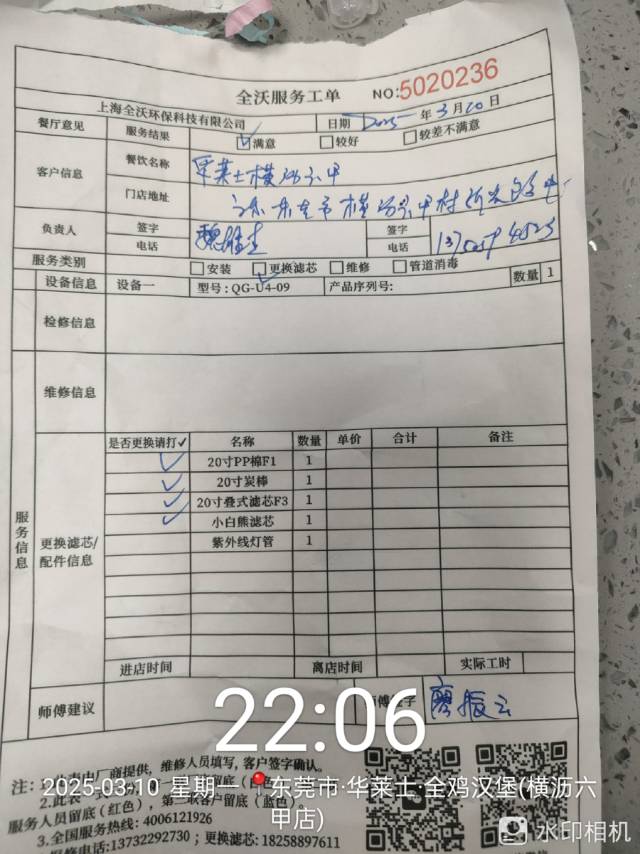 全沃服务工单 NO:5020236
上海全沃环保科技有限公司 日期 2025年3月10日
餐厅意见 服务结果 ☑满意 □较好 □较差不满意
客户信息 餐饮名称 华莱士横沥六甲
门店地址 广东东莞市横沥六甲村
负责人 签字 魏雄 签字
电话 电话
服务类别 □安装 ☑更换滤芯 □维修 □管道消毒
设备信息 设备一 型号:QG-U4-09 产品序列号: 数量 1
检修信息
维修信息
服务信息
更换滤芯/配件信息
是否更换请打✓ 名称 数量 单价 合计 备注
✓ 20寸PP棉F1 1
✓ 20寸炭棒 1
✓ 20寸叠式滤芯F3 1
✓ 小白熊滤芯 1
紫外线灯管 1
进店时间 离店时间 实际工时
师傅建议 师傅签字 廖振云
22:06
2025-03-10 星期一 东莞市·华莱士·全鸡汉堡(横沥六甲店)
注:
厂商提供,维修人员填写,客户签字确认。
2.此表
服务人员留底(红色),第三联客户留底(蓝色)。
3.全国服务热线:4006121926
维修电话:13732292730;更换滤芯:18258897611
水印相机